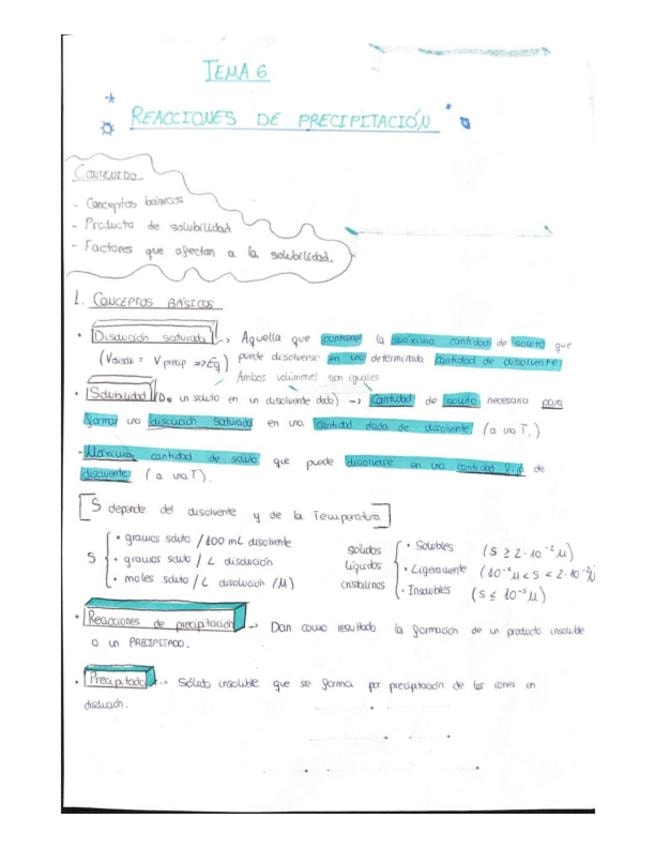 TEMA 6
REACCIONES DE PRECIPITACIÓN
CONTENIDO
- Conceptos básicos
- Producto de solubilidad
- Factores que afectan a la solubilidad.
1. CONCEPTOS BÁSICOS
• Disolución saturada -> Aquella que contiene la máxima cantidad de soluto que
(Vdisolc = Vprecip => Eq) puede disolverse en una determinada cantidad de disolvente
Ambos volúmenes son iguales
• Solubilidad (De un soluto en un disolvente dado) -> Cantidad de soluto necesaria para
formar una disolución saturada en una cantidad dada de disolvente (a una T.)
- Máxima cantidad de soluto que puede disolverse en una cantidad fija de
disolvente (a una T).
S depende del disolvente y de la Temperatura
S
• gramos soluto / 100 mL disolvente
• gramos soluto / L disolución
• moles soluto / L disolución (M)
sólidos
líquidos
cristalinos
• Solubles (S ≥ 2·10⁻² M)
• Ligeramente (10⁻⁵ M < S < 2·10⁻²
• Insolubles (S ≤ 10⁻⁵ M)
• Reacciones de precipitación -> Dan como resultado la formación de un producto insoluble
o un PRECIPITADO.
• Precipitado -> Sólido insoluble que se forma por precipitación de los iones en
disolución.